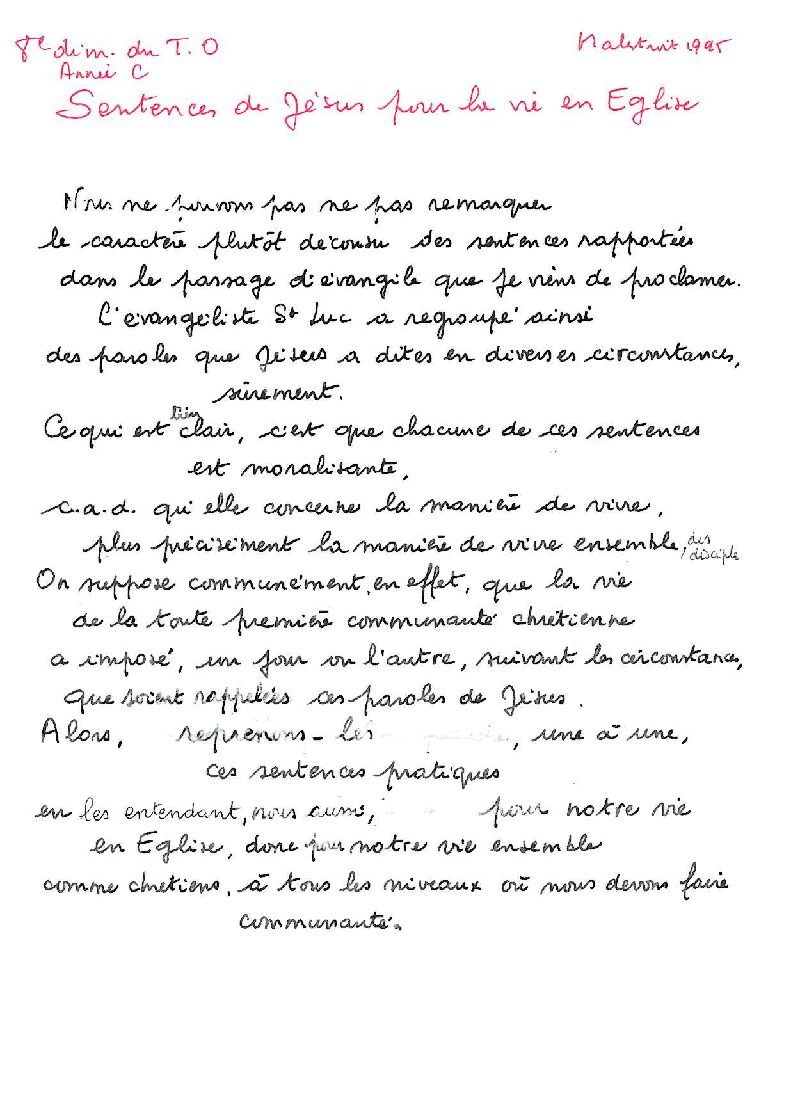 8e dim. du T.O
Malestroit 1995
Année C
Sentences de Jésus pour la vie en Eglise
Nous ne pouvons pas ne pas remarquer
le caractère plutôt décousu des sentences rapportées
dans le passage d'évangile que je viens de proclamer.
L'évangéliste St Luc a regroupé ainsi
des paroles que Jésus a dites en diverses circonstances,
sûrement.
Ce qui est bien clair, c'est que chacune de ces sentences
est moralisante,
c.a.d. qu'elle concerne la manière de vivre,
plus précisément la manière de vivre ensemble, des disciple
On suppose communément, en effet, que la vie
de la toute première communauté chrétienne
a imposé, un jour ou l'autre, suivant les circonstances,
que soient rappelées ces paroles de Jésus.
Alors, reprenons-les, une à une,
ces sentences pratiques
en les entendant, nous aussi, pour notre vie
en Eglise, donc pour notre vie ensemble
comme chrétiens, à tous les niveaux où nous devons faire
communauté.